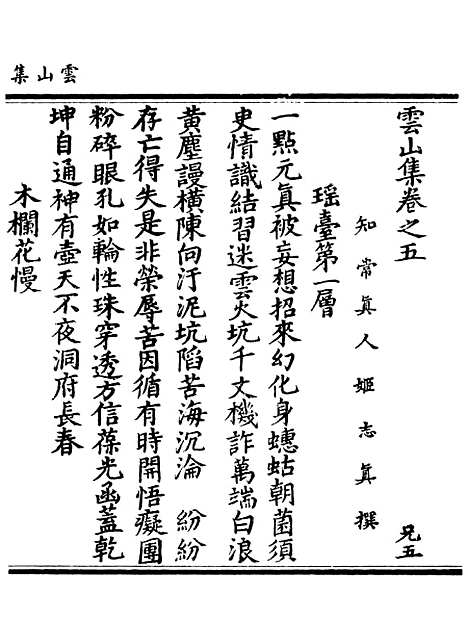 雲山集
雲山集卷之五　兄五
知常真人姬志真撰
瑶臺第一層
一點元真被妄想招來幻化身蟪蛄朝菌須
臾情識結習迷雲火坑千丈機詐萬端白浪
黄塵謾橫陳向汙泥坑陷苦海沉淪　紛紛
存亡得失是非榮辱苦因循有時開悟癡團
粉碎眼孔如輪性珠穿透方信葆光函蓋乾
坤自通神有壺天不夜洞府長春
木欄花慢